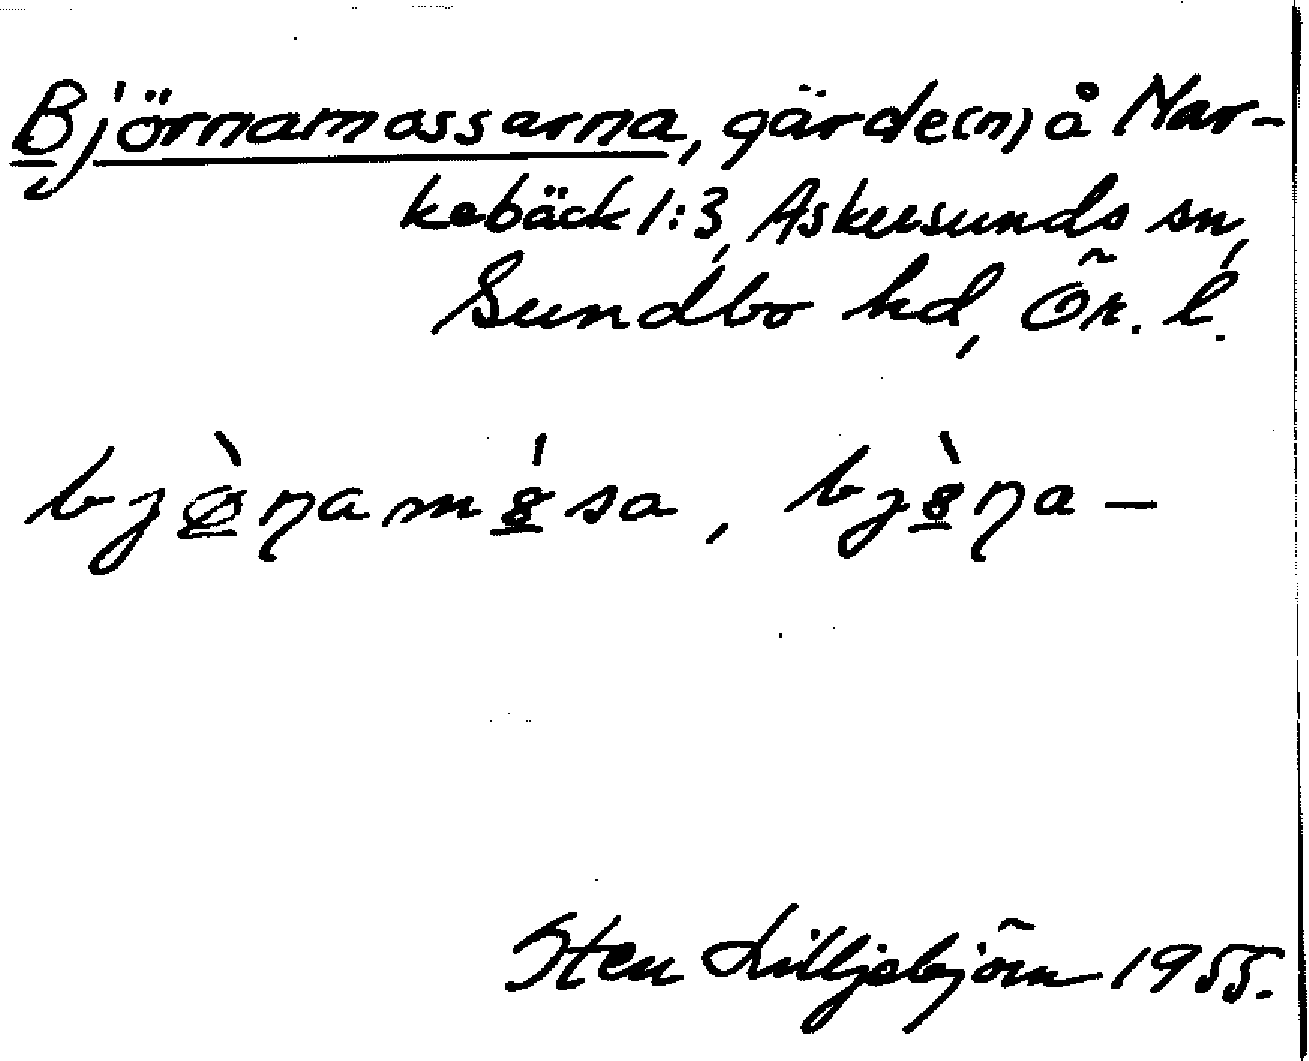 Björnamossarna, gärde(n) å Mar-
kebäck 1:3, Askersunds sn,
Sundbo hd, Ör. l.
bjø̲̀ɳamȣ̲́sa, bjȣ̲̀ɳa—
Sten Lilljebjörn 1955.